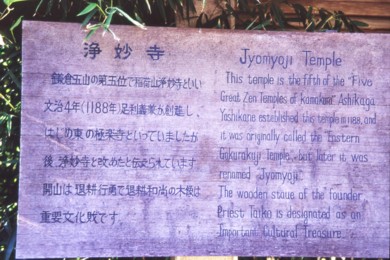 浄妙寺
鎌倉五山の第五位で稲荷山浄妙寺といい
文治4年(1188年)足利義兼が創建し、
はじめ東の極楽寺といっていましたが
後、浄妙寺と改めたと伝えられています
開山は退耕行勇で退耕和尚の木像は
重要文化財です。
Jyomyoji Temple
This temple is the fifth of the "Five
Great Zen Temples of Kamakura". Ashikaga
Yoshikane established the temple in 1188, and
it was originally called the "Eastern
Gokurakuji Temple", but later it was
renamed "Jyomyoji".
The wooden staue of the founder
Priest Taiko is designated as an
Important Cultural Treasure.